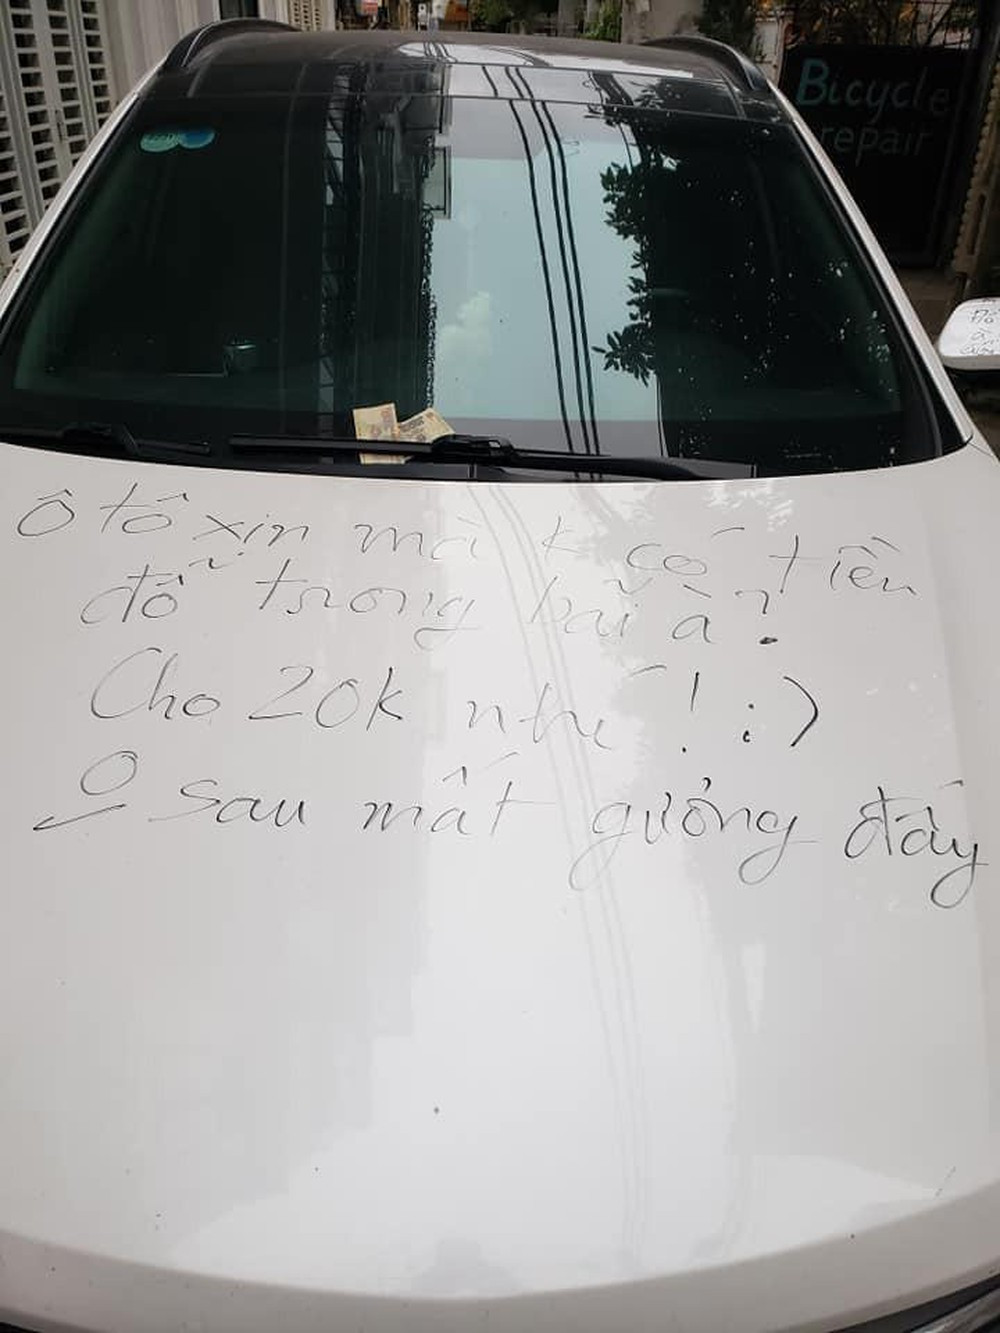 Bicycle
repair
Ô tô xịn mà k có tiền
đỗ trong bãi à?
Cho 20k nhé! :)
sau mất gưởng đấy
Đỗ
à